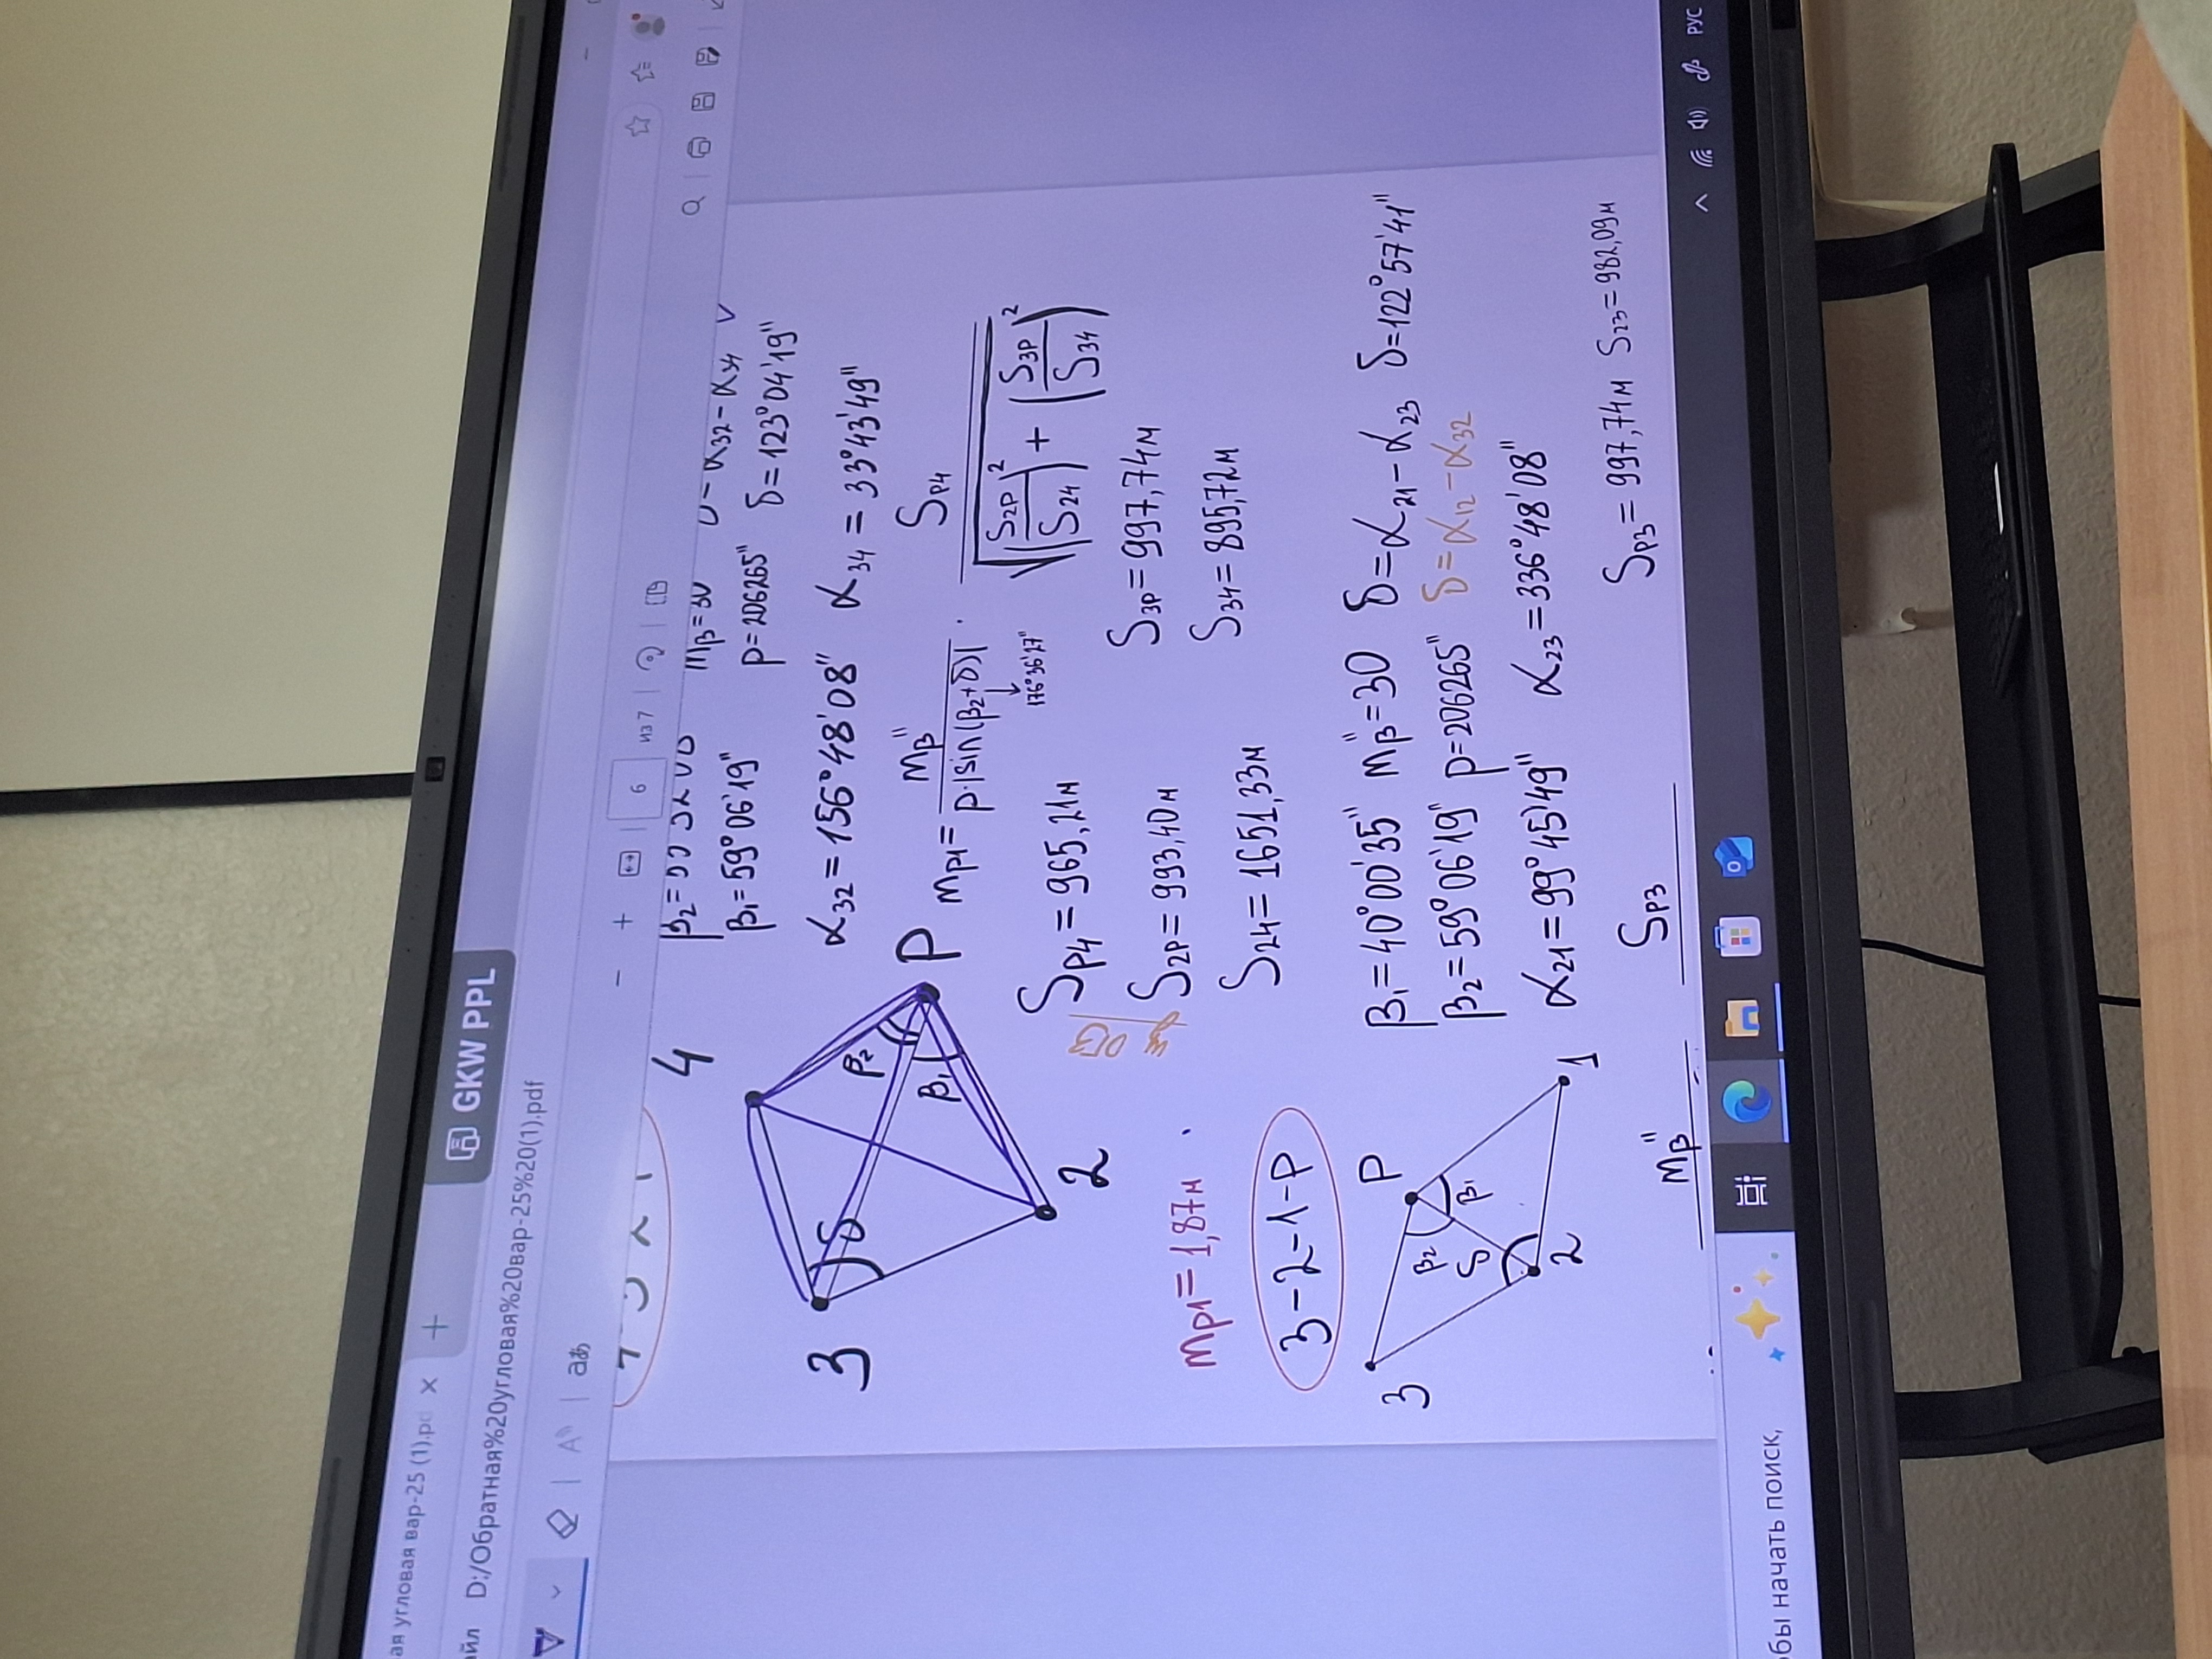 ая угловая вар-25 (1).pd × +
айл D:/Обратная%20угловая%20вар-25%20(1).pdf
GKW PPL
aあ
− + 6 из 7
mβ=30
β₁=59°06'19" p=206265" δ=123°04'19"
α₃₂=156°48'08" α₃₄=33°43'49"
4
3
2
P
β₂
β₁
δ
mp1= mβ" / p·|sin(β₂+δ)| · Sp4 / √((S2p/S24)² + (S3p/S34)²)
176°36'27"
Sp4=965,21м
S2p=993,40м S3p=997,74м
S24=1651,33м S34=895,72м
mp1=1,87м
3-2-1-P
3
P
2
1
β₂
β₁
δ
β₁=40°00'35" mβ"=30 δ=α₂₁-α₂₃ δ=122°57'41"
β₂=59°06'19" p=206265" δ=α₁₂-α₃₂
α₂₁=99°45'49" α₂₃=336°48'08"
mβ" Sp3 Sp3=997,74м S23=982,09м
бы начать поиск,
РУС